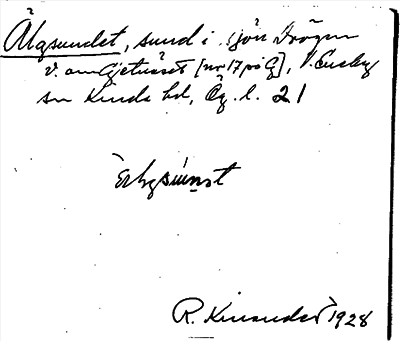 Älgsundet, sund i sjön Drögen
v. om Getnäset [nr 17 på G], V. Eneby
sn Kinda hd, Ög. l. 21
R. Kinander 1928